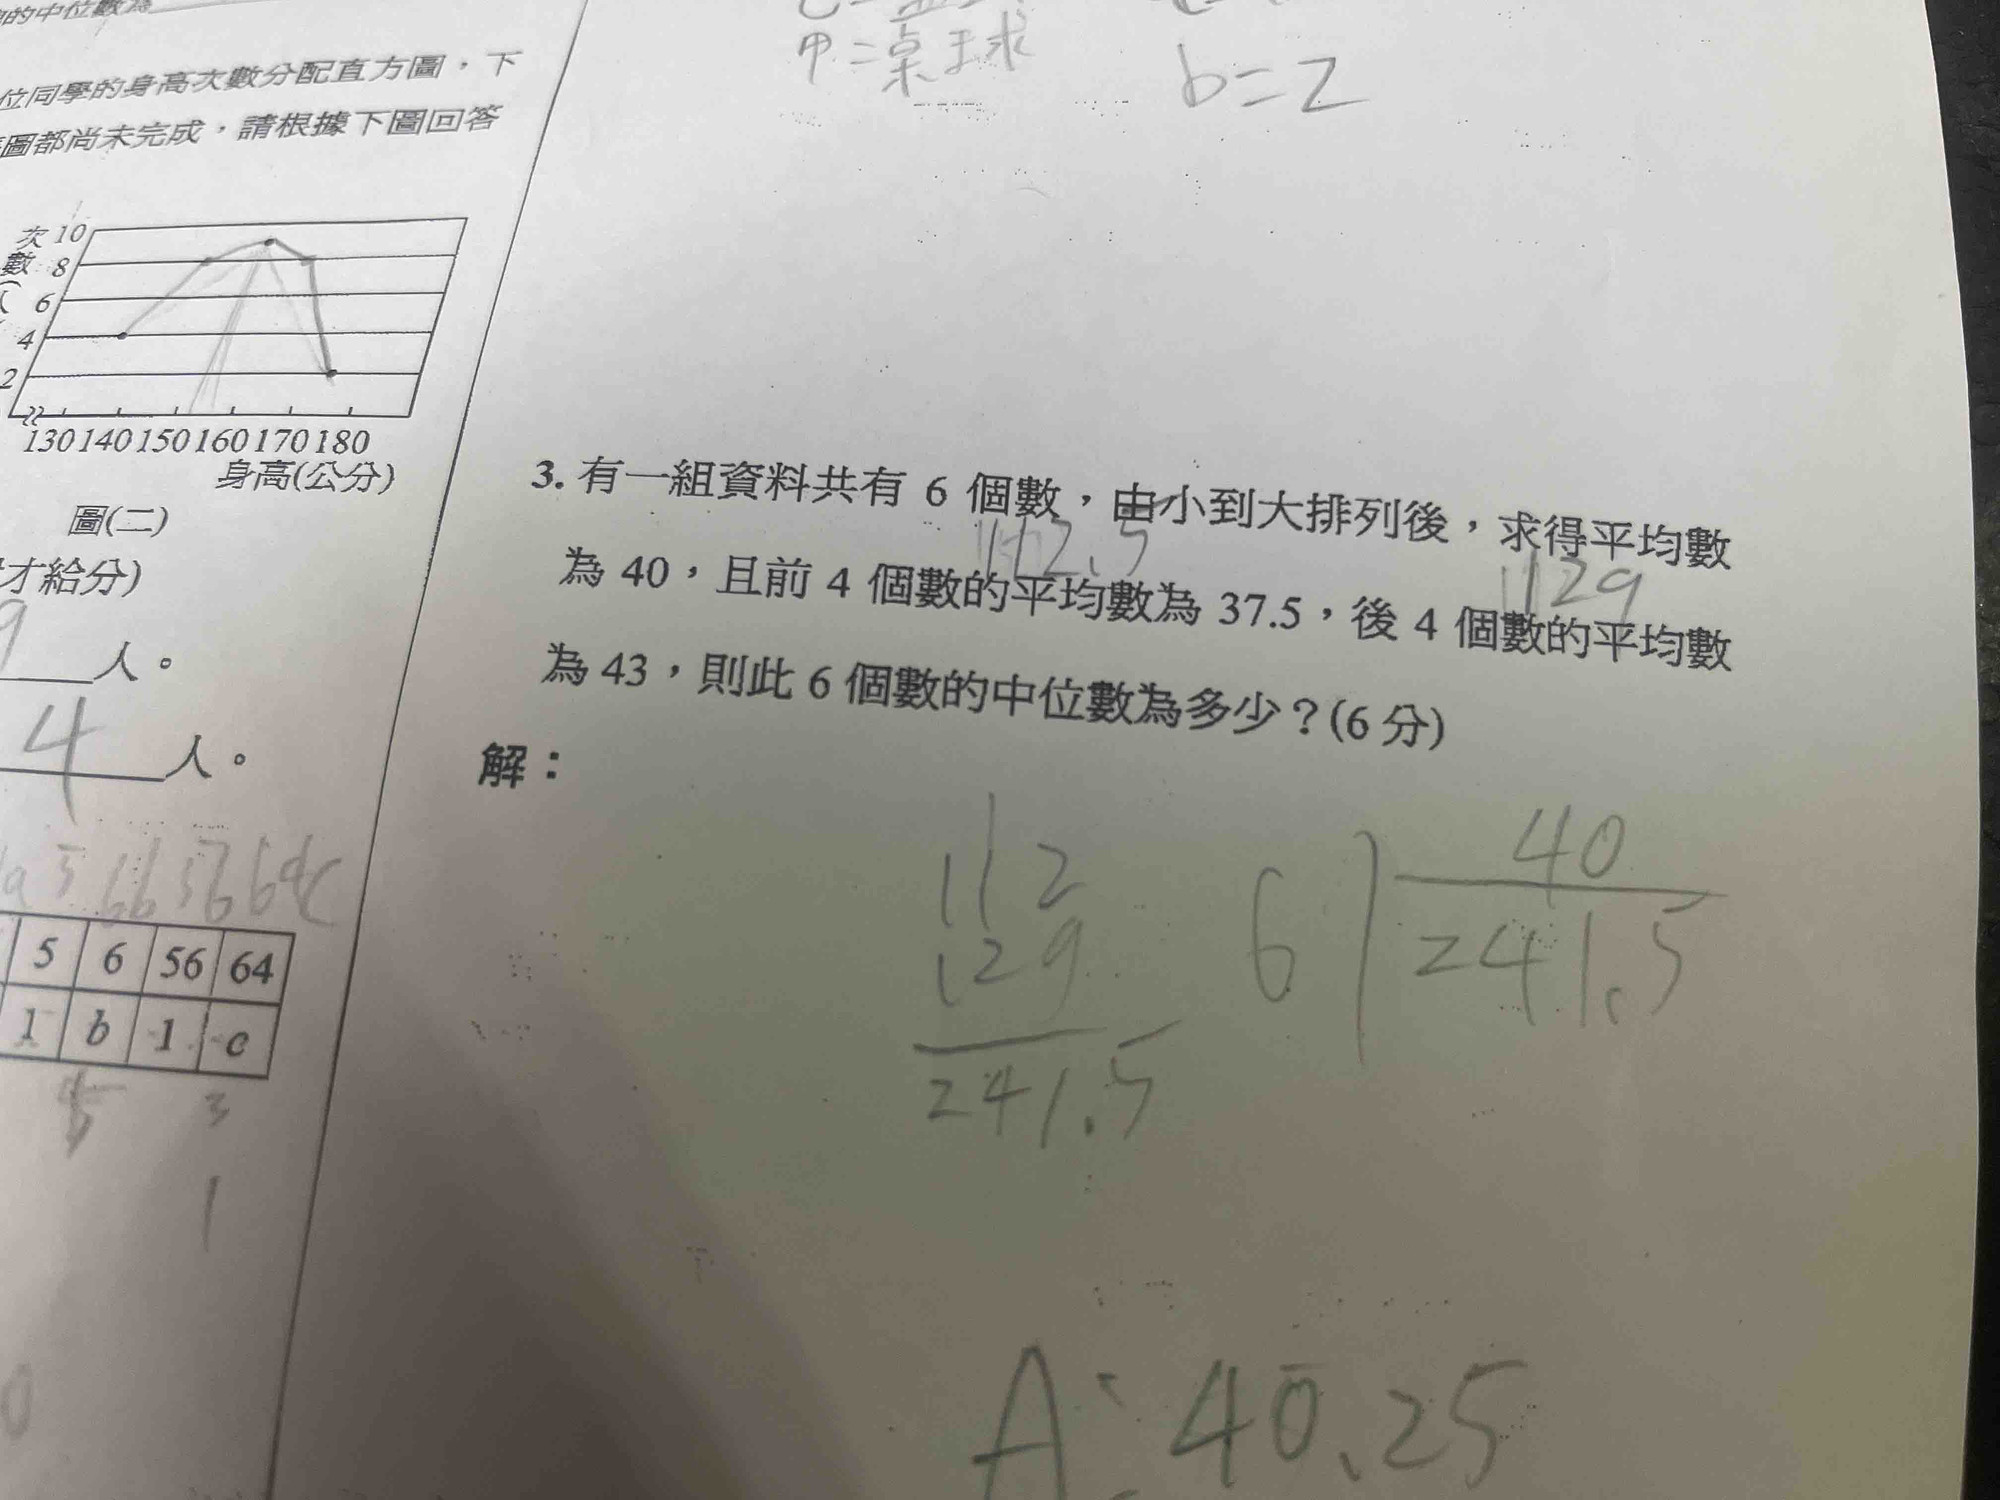 的中位數為
位同學的身高次數分配直方圖，下
圖都尚未完成，請根據下圖回答
次 10
數 8
6
4
2
130 140 150 160 170 180
身高(公分)
圖(二)
才給分)
9 人。
4 人。
5 6 56 64
1 b 1 c
3
1
0
甲=桌球
b=2
3. 有一組資料共有 6 個數，由小到大排列後，求得平均數
112.5
129
為 40，且前 4 個數的平均數為 37.5，後 4 個數的平均數
為 43，則此 6 個數的中位數為多少？(6 分)
解：
112
129
241.5
40
6)241.5
A: 40.25